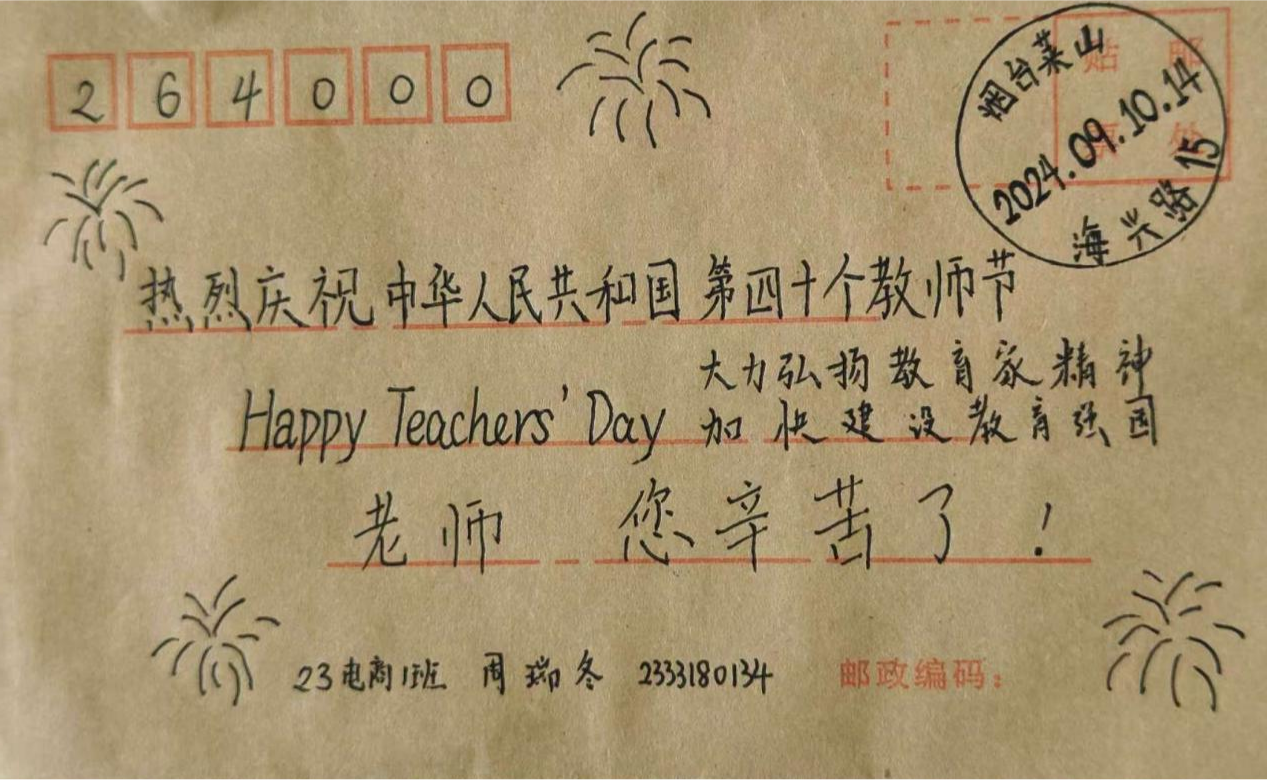 264000
贴 邮
票 处
烟台莱山
2024.09.10.14
海兴路15
热烈庆祝中华人民共和国第四十个教师节
大力弘扬教育家精神
Happy Teachers' Day 加快建设教育强国
老师 您辛苦了!
23电商1班 周瑞冬 2333180134 邮政编码: